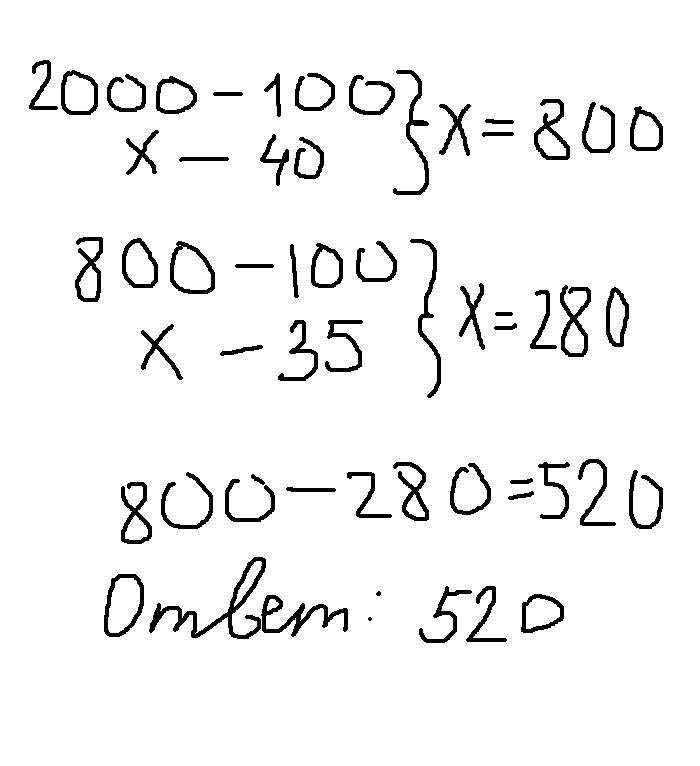 2000 - 100 } x = 800
x - 40
800 - 100 } x = 280
x - 35
800 - 280 = 520
Ответ: 520